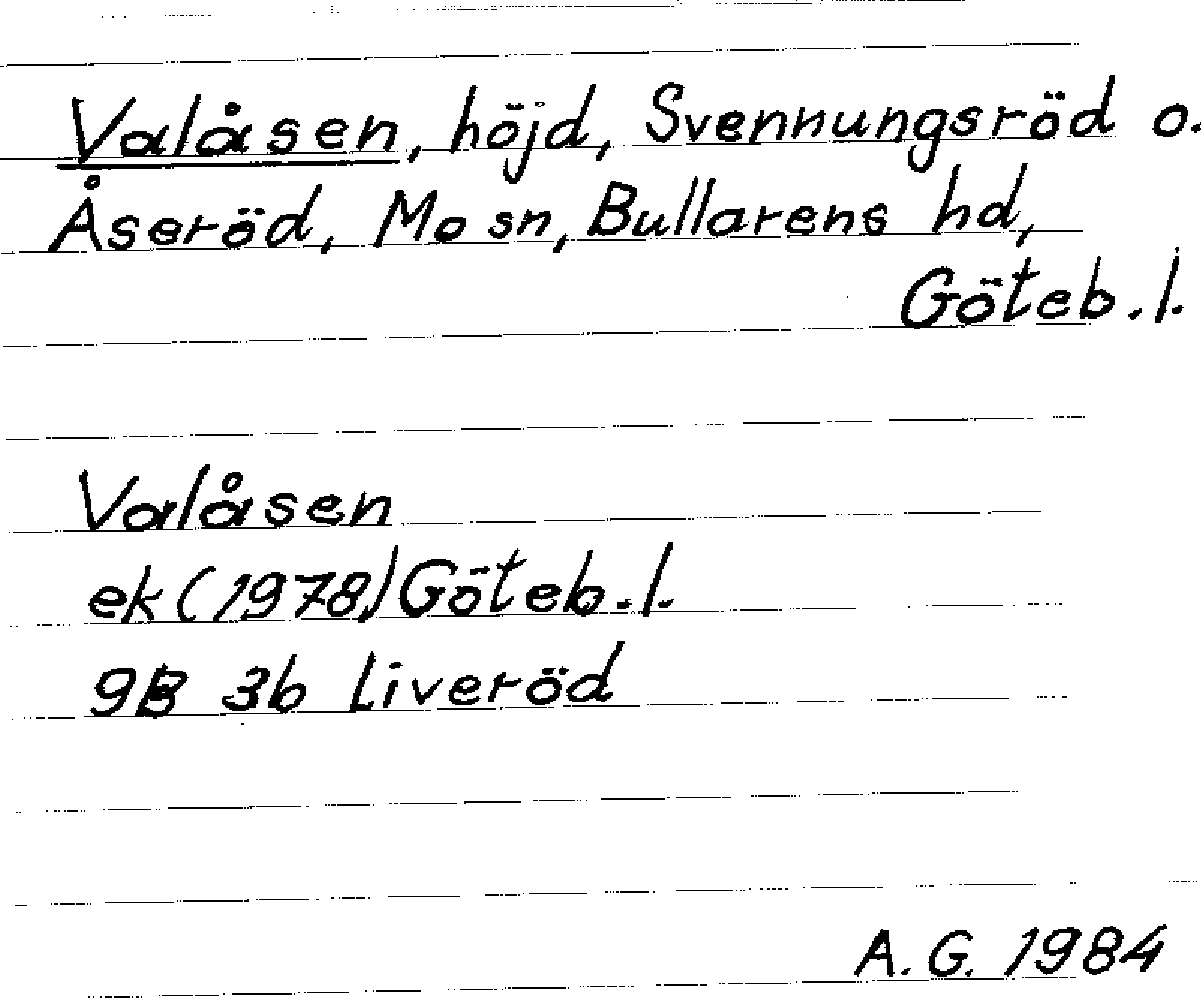 Valåsen, höjd, Svennungsröd o.
Åseröd, Mo sn, Bullarens hd,
Göteb. l.
Valåsen
ek (1978) Göteb. l.
9B 3b Liveröd
A. G. 1984